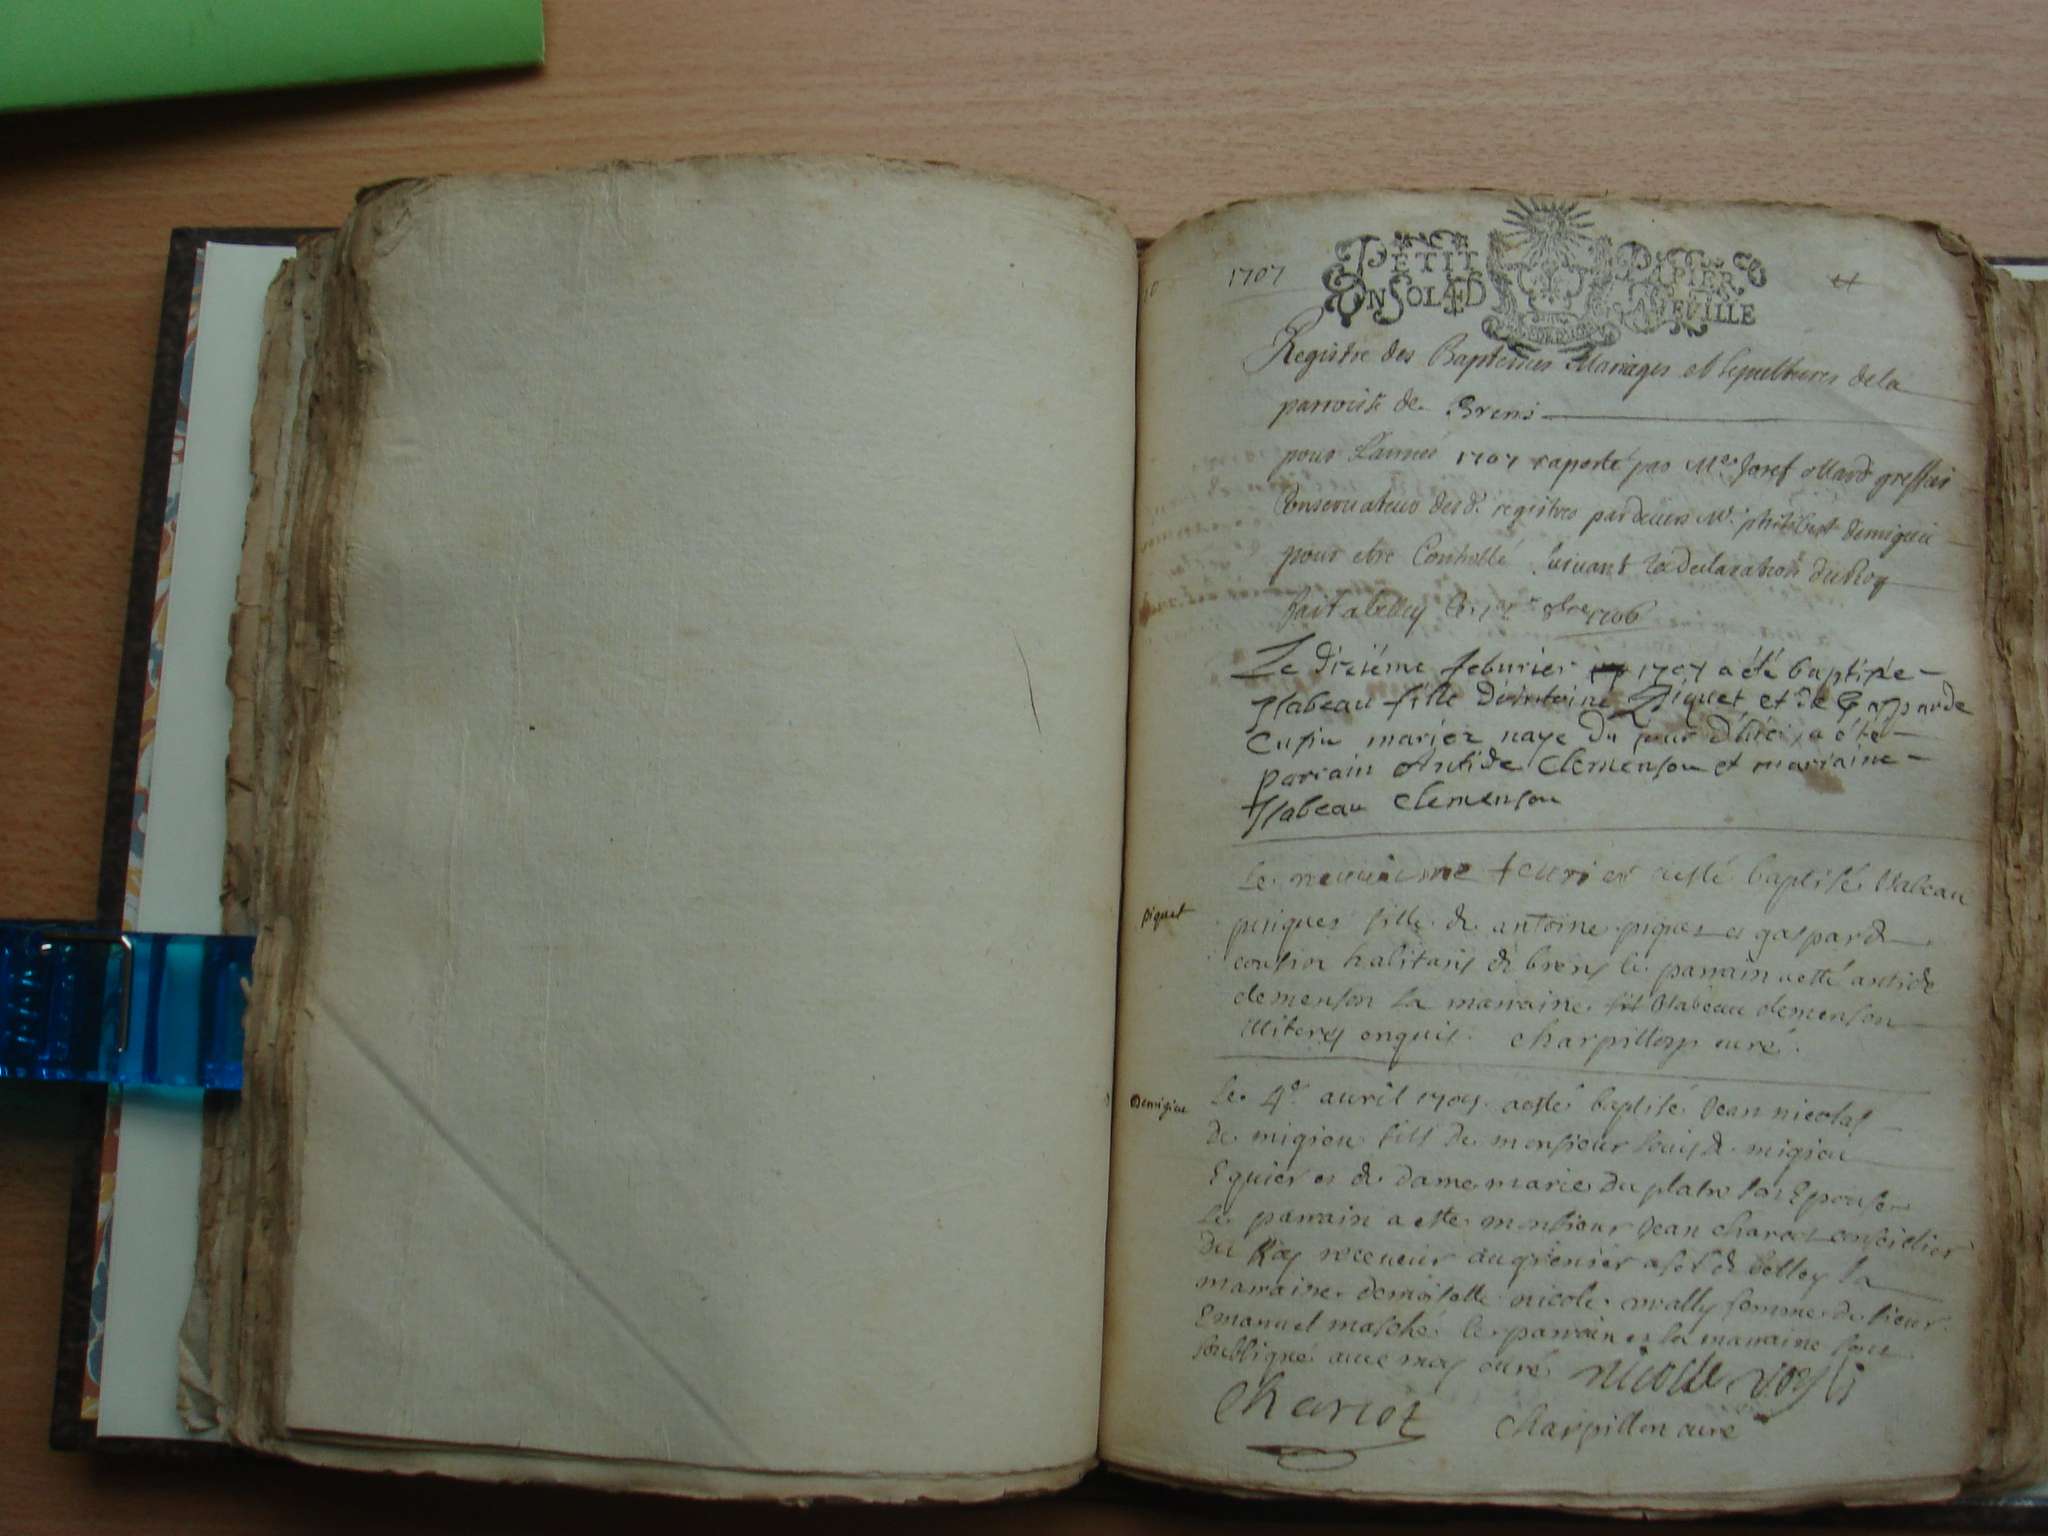 1707
PETIT PAPIER
UN SOL LA FEUILLE
Registre des Baptesmes Mariages et sepultures de la
parroisse de Brens
pour Lannee 1707 raporté par Me Josef ollard greffier
Conservateur des d. registres pardevers Mr. philibert demigieu
pour etre Controllé suivant la declaration du Roy
fait a belley le 1er 8bre 1706
Le diziéme feburier 1707 a été baptisée
Isabeau fille dAntoine Piquet et de Gasparde
Cusin mariez naye du jour d'hier, a été
parrain Antide Clemenson et marraine
Isabeau Clemenson
Le neuuieme feurier aesté baptisée Isabeau
piquet
piques fille de antoine piques et gasparde
cousin habitans de brens le parrain aesté antide
clemenson la marraine Isabeau clemenson
illiteres enquis. Charpillon curé.
Demigieu
Le 4e auril 1707 aesté baptisé Jean nicolas
de migieu fils de monsieur louis de migieu
Equier et de dame marie du platre son Epouse
le parrain a esté monsieur Jean chariot conseiller
du Roy receueur au grenier a sel de belley la
marraine demoiselle nicole femme de sieur
Emanuel masché le parrain et la marraine sous
soubsigné auec moy curé nicolle
Chariot Charpillon curé